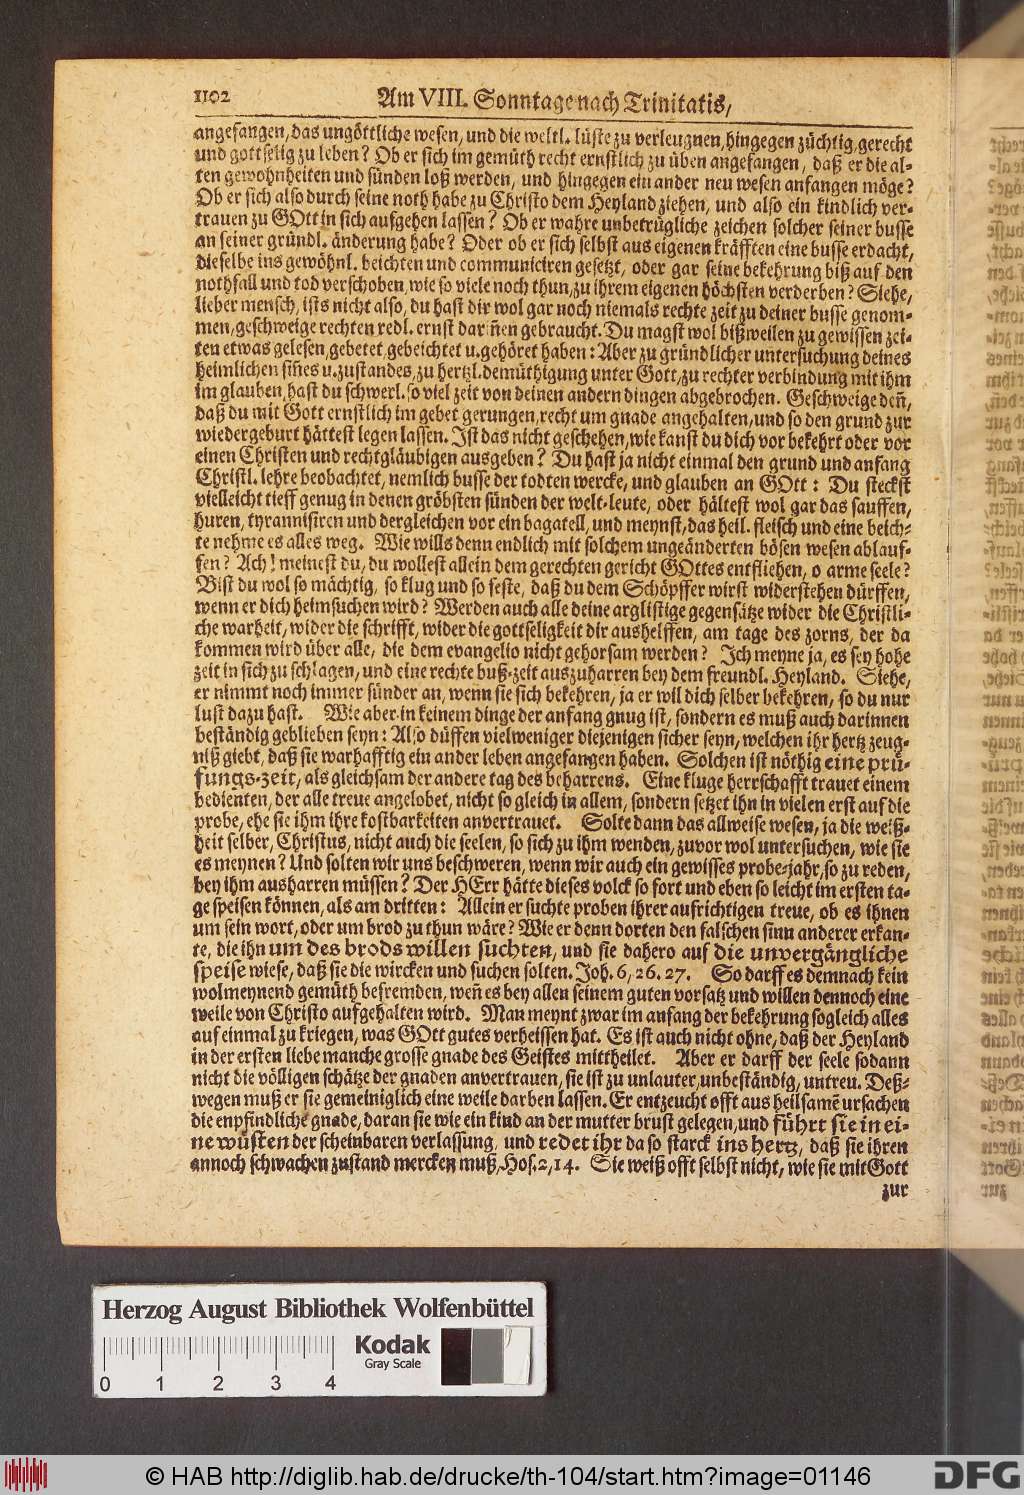 1102 Am VIII. Sonntage nach Trinitatis,
angefangen, das ungöttliche wesen, und die weltl. lüste zu verleugnen, hingegen züchtig, gerecht
und gottselig zu leben? Ob er sich im gemüth recht ernstlich zu üben angefangen, daß er die al-
ten gewohnheiten und sünden loß werden, und hingegen ein ander neu wesen anfangen möge?
Ob er sich also durch seine noth habe zu Christo dem Heyland ziehen, und also ein kindlich ver-
trauen zu GOtt in sich aufgehen lassen? Ob er wahre unbetrügliche zeichen solcher seiner busse
an seiner gründl. änderung habe? Oder ob er sich selbst aus eigenen kräfften eine busse erdacht,
dieselbe ins gewöhnl. beichten und communiciren gesetzt, oder gar seine bekehrung biß auf den
nothfall und tod verschoben, wie so viele noch thun, zu ihrem eigenen höchsten verderben? Siehe,
lieber mensch, ists nicht also, du hast dir wol gar noch niemals rechte zeit zu deiner busse genom-
men, geschweige rechten redl. ernst darinnen gebraucht. Du magst wol bißweilen zu gewissen zei-
ten etwas gelesen, gebetet, gebeichtet u. gehöret haben: Aber zu gründlicher untersuchung deines
heimlichen sinnes u. zustandes, zu hertzl. demüthigung unter Gott, zu rechter verbindung mit ihm
im glauben, hast du schwerl. so viel zeit von deinen andern dingen abgebrochen. Geschweige deñ,
daß du mit Gott ernstlich im gebet gerungen, recht um gnade angehalten, und so den grund zur
wiedergeburt hättest legen lassen. Ist das nicht geschehen, wie kanst du dich vor bekehrt oder vor
einen Christen und rechtgläubigen ausgeben? Du hast ja nicht einmal den grund und anfang
Christl. lehre beobachtet, nemlich busse der todten wercke, und glauben an GOtt: Du steckst
vielleicht tieff genug in denen gröbsten sünden der welt-leute, oder hältest wol gar das sauffen,
huren, tyrannisiren und dergleichen vor ein bagatell, und meynst, das heil. fleisch und eine beich-
te nehme es alles weg. Wie wills denn endlich mit solchem ungeänderten bösen wesen ablauf-
fen? Ach! meinest du, du wollest allein dem gerechten gericht GOttes entfliehen, o arme seele?
Bist du wol so mächtig, so klug und so feste, daß du dem Schöpffer wirst widerstehen dürffen,
wenn er dich heimsuchen wird? Werden auch alle deine arglistige gegensätze wider die Christli-
che warheit, wider die schrifft, wider die gottseligkeit dir aushelffen, am tage des zorns, der da
kommen wird über alle, die dem evangelio nicht gehorsam werden? Ich meyne ja, es sey hohe
zeit in sich zu schlagen, und eine rechte buß-zeit auszuharren bey dem freundl. Heyland. Siehe,
er nimmt noch immer sünder an, wenn sie sich bekehren, ja er wil dich selber bekehren, so du nur
lust dazu hast. Wie aber in keinem dinge der anfang gnug ist, sondern es muß auch darinnen
beständig geblieben seyn: Also düffen vielweniger diejenigen sicher seyn, welchen ihr hertz zeug-
niß giebt, daß sie warhafftig ein ander leben angefangen haben. Solchen ist nöthig eine prü-
fungs-zeit, als gleichsam der andere tag des beharrens. Eine kluge herrschafft trauet einem
bedienten, der alle treue angelobet, nicht so gleich in allem, sondern setzet ihn in vielen erst auf die
probe, ehe sie ihm ihre kostbarkeiten anvertrauet. Solte dann das allweise wesen, ja die weiß-
heit selber, Christus, nicht auch die seelen, so sich zu ihm wenden, zuvor wol untersuchen, wie sie
es meynen? Und solten wir uns beschweren, wenn wir auch ein gewisses probe-jahr, so zu reden,
bey ihm ausharren müssen? Der HErr hätte dieses volck so fort und eben so leicht im ersten ta-
ge speisen können, als am dritten: Allein er suchte proben ihrer aufrichtigen treue, ob es ihnen
um sein wort, oder um brod zu thun wäre? Wie er denn dorten den falschen sinn anderer erkan-
te, die ihn um des brods willen suchten, und sie dahero auf die unvergängliche
speise wiese, daß sie die wircken und suchen solten. Joh. 6, 26. 27. So darff es demnach kein
wolmeynend gemüth befremden, weñ es bey allen seinem guten vorsatz und willen dennoch eine
weile von Christo aufgehalten wird. Man meynt zwar im anfang der bekehrung sogleich alles
auf einmal zu kriegen, was GOtt gutes verheissen hat. Es ist auch nicht ohne, daß der Heyland
in der ersten liebe manche grosse gnade des Geistes mittheilet. Aber er darff der seele sodann
nicht die völligen schätze der gnaden anvertrauen, sie ist zu unlauter, unbeständig, untreu. Deß-
wegen muß er sie gemeiniglich eine weile darben lassen. Er entzeucht offt aus heilsamē ursachen
die enpfindliche gnade, daran sie wie ein kind an der mutter brust gelegen, und führt sie in ei-
ne wüsten der scheinbaren verlassung, und redet ihr da so starck ins hertz, daß sie ihren
annoch schwachen zustand mercken muß, Hos. 2, 14. Sie weiß offt selbst nicht, wie sie mit Gott
zur
Herzog August Bibliothek Wolfenbüttel
Kodak
Gray Scale
0 1 2 3 4
© HAB http://diglib.hab.de/drucke/th-104/start.htm?image=01146
DFG